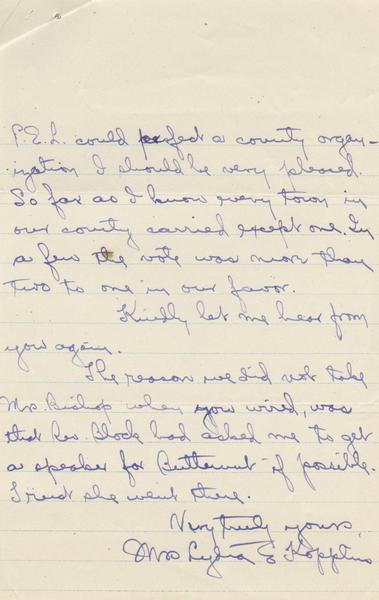 P.E.L. could perfect a county organ-
ization I should be very pleased.
So far as I know every town in
our county carried except one. In
a few the vote was more than
two to one in our favor.
Kindly let me hear from
you again.
The reason we did not take
Mrs. Bishop when you wired, was
that Mrs. Block had asked me to get
a speaker for Butternut if possible.
I went she went there.
Very truly yours,
Mrs Lydia E